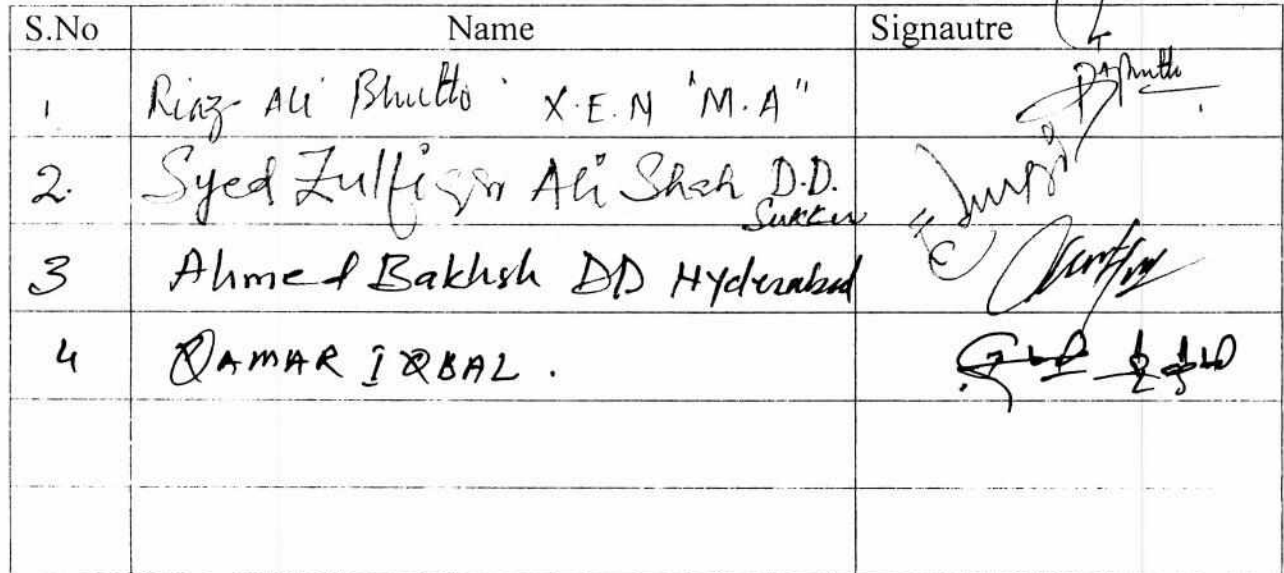 S.No Name Signautre
1 Riaz Ali Bhutto X.E.N "M.A"
2. Syed Zulfiqar Ali Shah D.D. Sukkur
3 Ahmed Bakhsh DD Hyderabad
4 QAMAR IQBAL.